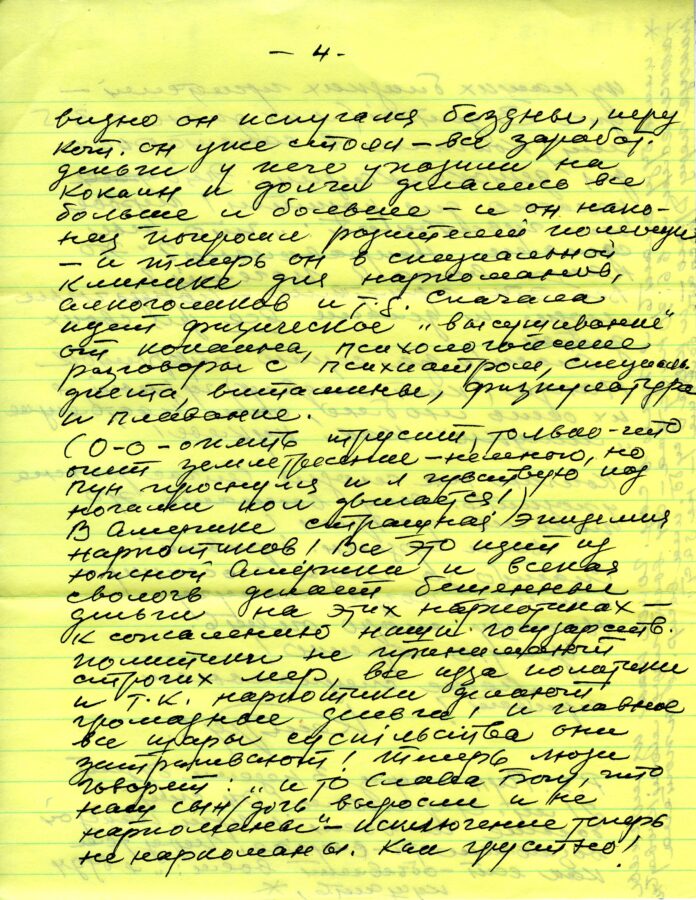 – 4 –
видно он испугался бездны, перед
кот. он уже стоял – все заработ.
деньги у него уходили на
кокаин и долги делались все
больше и больше – и он нако-
нец попросил родителей помощи
– и теперь он в специальной
клинике для наркоманов,
алкоголиков и т.д. Сначала
идет физическое „высушивание"
от кокаина, психологические
разговоры с психиатром, специальн.
диета, витамины, физкультура
и плавание.
(О-о – опять трусит, только-что
опять землетрясение – немного, но
Пун проснулся и я чувствую под
ногами пол двигается!)
В Америке страшная эпидемия
наркотиков! Все это идет из
Южной Америки и всякая
сволочь делает бешенные
деньги на этих наркотиках –
к сожалению наши государств.
политики не принимают
строгих мер, все изза политики
и т.к. наркотики делают
громадные деньги! И главное
все шары суспільства они
затрагивают! Теперь люди
говорят: „и то Слава Богу, что
наш сын/дочь выросли и не
наркоманы" – исключение теперь
не наркоманы. Как грустно!